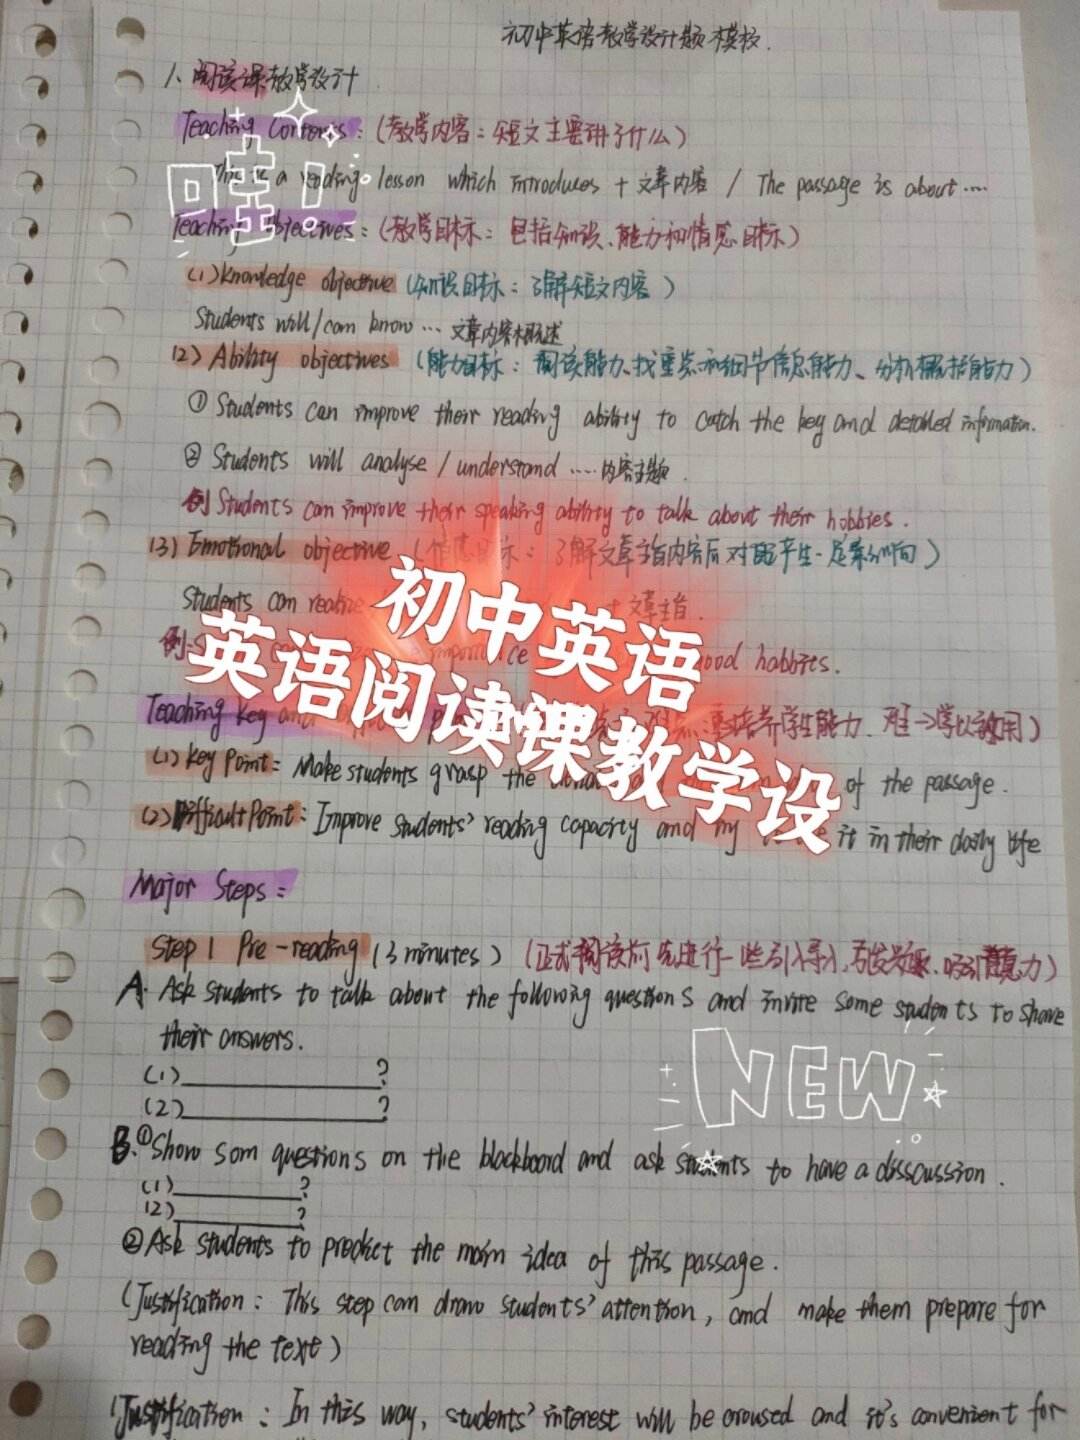 初中英语教学设计题模板.
1. 阅读课教学设计
Teaching Contents: (教学内容：短文主要讲了什么)
This is a reading lesson which introduces + 文章内容 / The passage is about ....
哇!
Teaching Objectives: (教学目标：包括知识、能力和情感目标)
(1) Knowledge objective (知识目标：了解短文内容)
Students will/can know ... 文章内容概述
(2) Ability objectives (能力目标：阅读能力、找重点和细节信息能力、分析概括能力)
① Students can improve their reading ability to catch the key and detailed information.
② Students will analyse / understand ..... 内容主题.
例 Students can improve their speaking ability to talk about their hobbies.
(3) Emotional objective (情感目标：了解文章主旨内容后对
Students can realize 文章主旨.
例: good habbies.
初中英语
英语阅读课教学设
Teaching Key and 培养学生能力、难→学以致用)
(1) Key Point: Make students grasp the of the passage.
(2) Difficult Point: Improve students' reading capacity and it in their daily life
Major Steps:
Step 1 Pre-reading (3 minutes) (正式阅读前先进行一些引导,引发兴趣、吸引注意力)
A. Ask students to talk about the following questions and invite some students to share
their answers.
(1) ?
(2) ?
NEW
B. ① Show som questions on the blackboard and ask students to have a disscussion.
(1) ?
(2) ?
② Ask students to predict the main idea of this passage.
(Justification: This step can draw students' attention, and make them prepare for
reading the text)
(Justification: In this way, students' interest will be aroused and it's convenient for